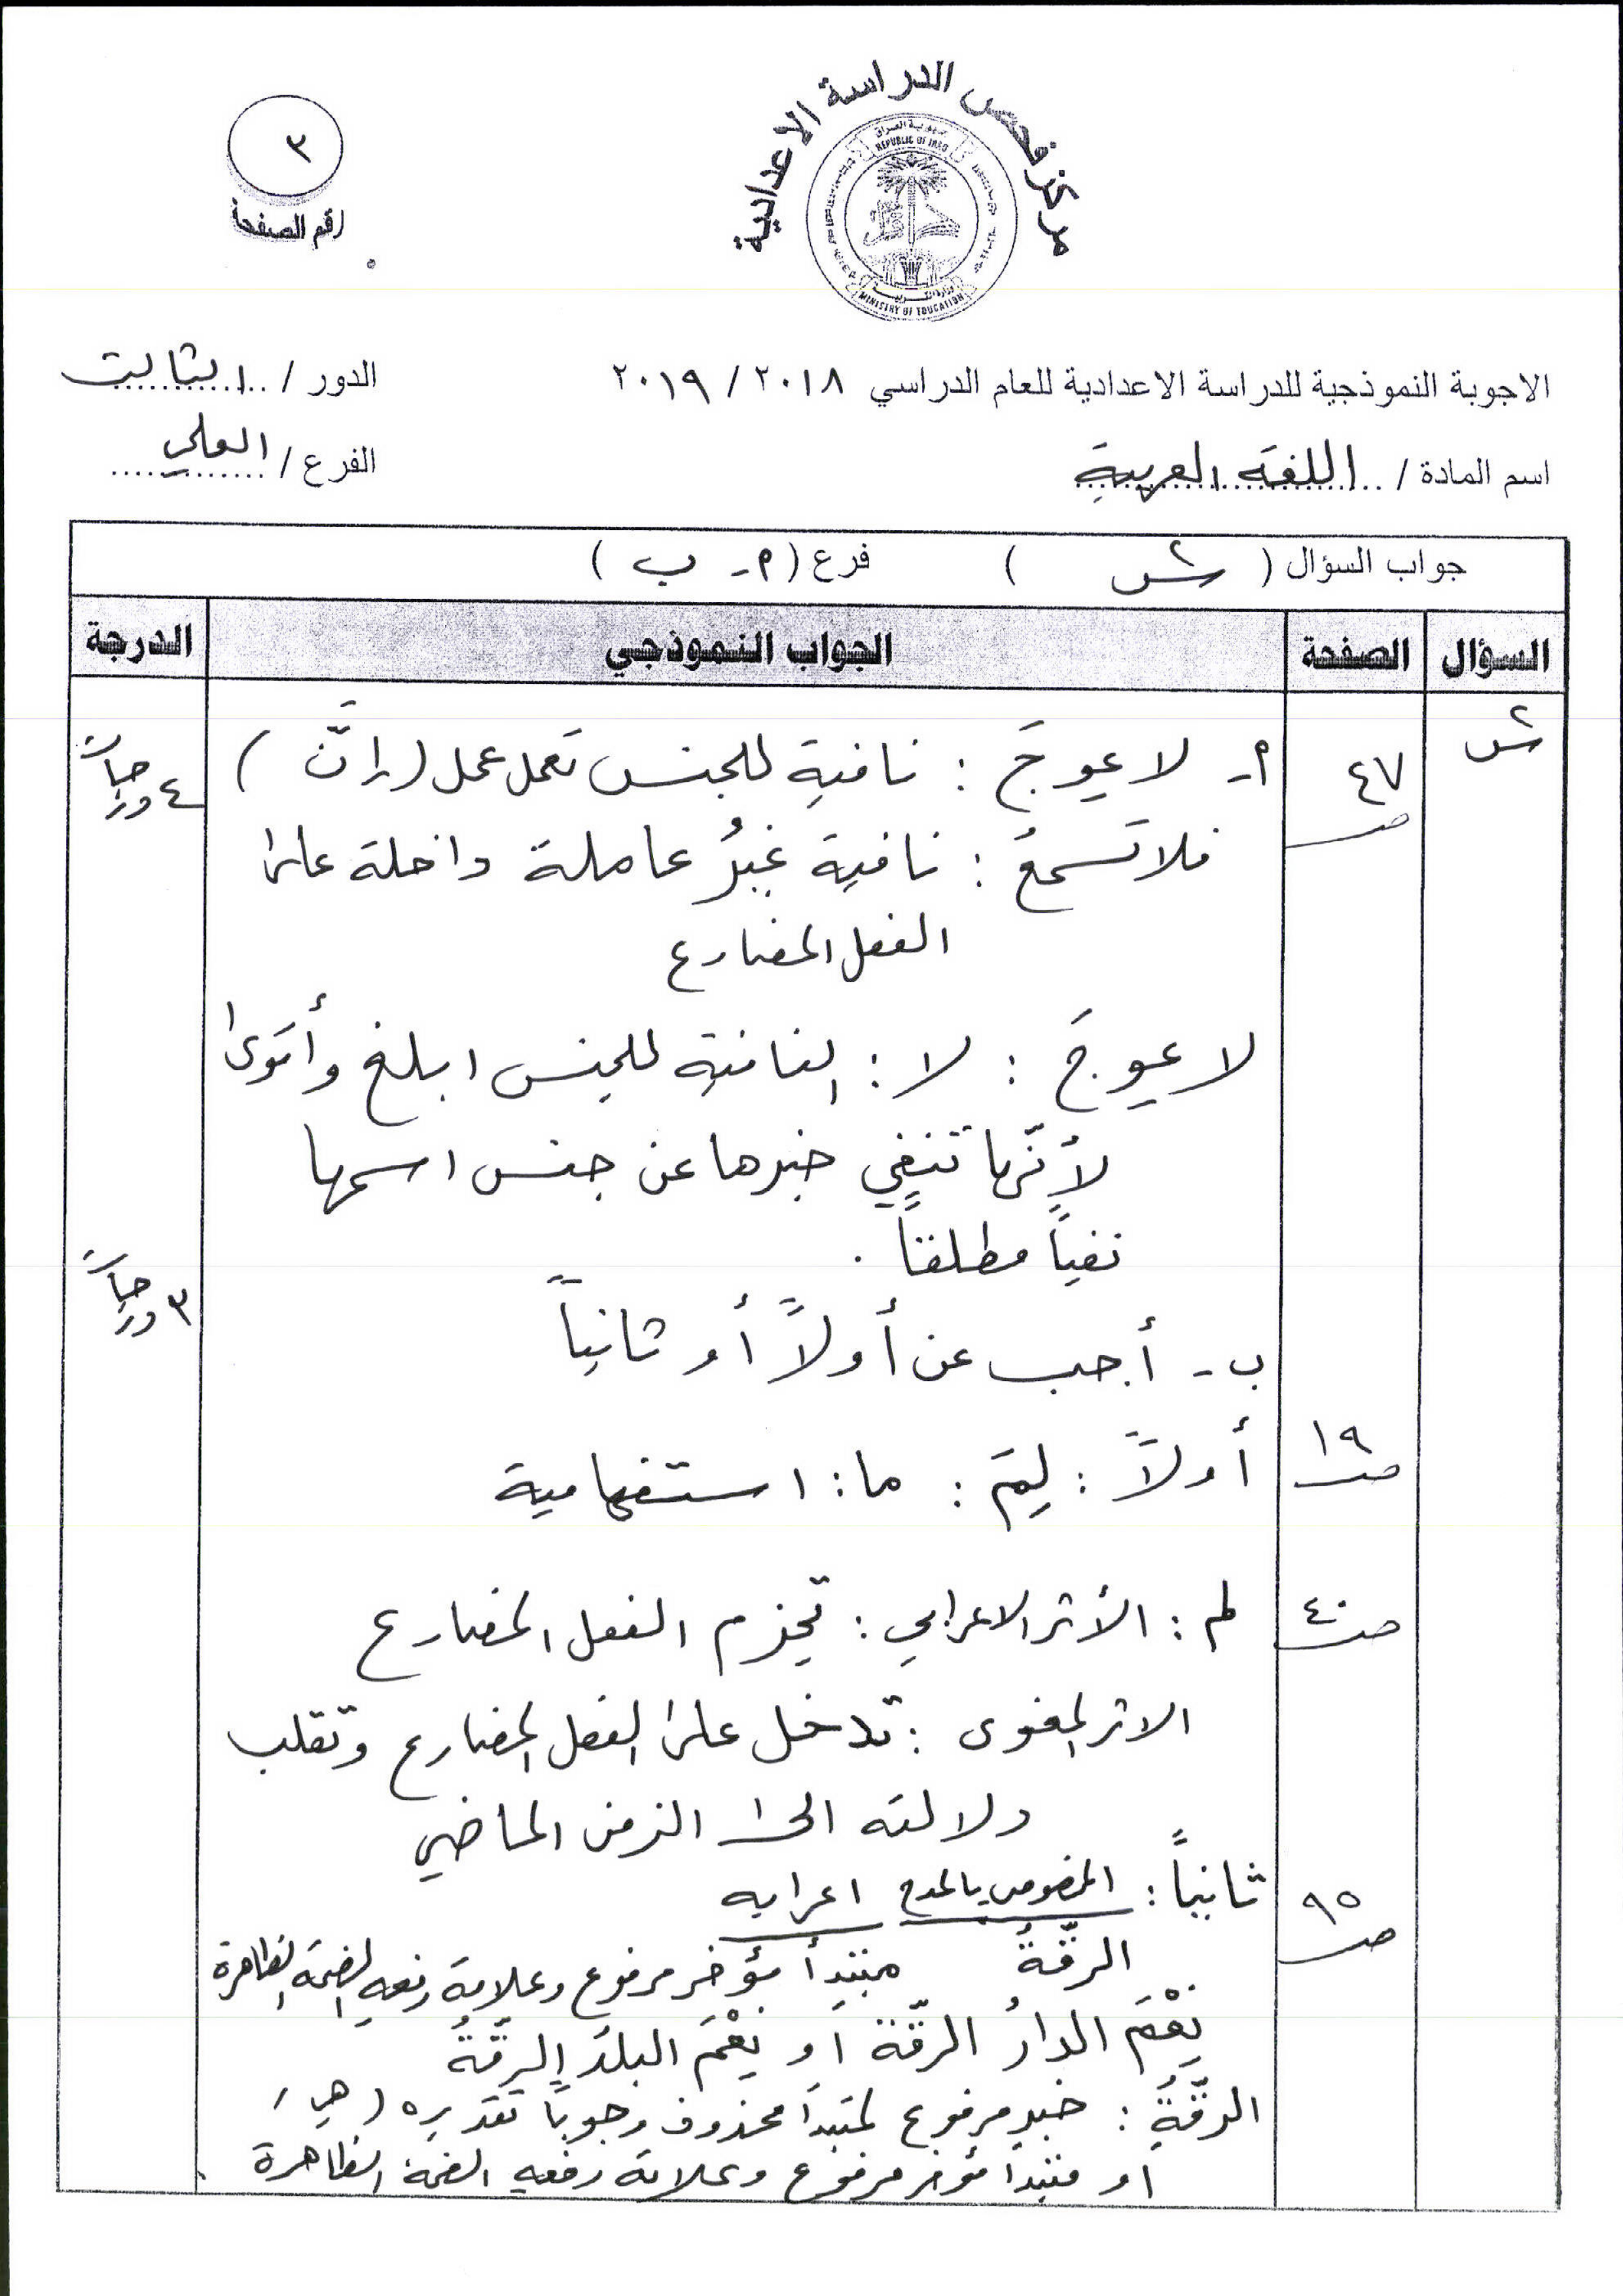 مركز فحص الدراسة الاعدادية
جمهورية العراق
REPUBLIC OF IRAQ
MINISTRY OF EDUCATION
٣
رقم الصفحة
الاجوبة النموذجية للدراسة الاعدادية للعام الدراسي ٢٠١٨ / ٢٠١٩
الدور / الثالث
اسم المادة / اللغة العربية
الفرع / العلمي
جواب السؤال ( س٢ ) فرع ( أ - ب )
السؤال الصفحة الجواب النموذجي الدرجة
س٢
ص ٤٧
أ - لا عوجَ : نافية للجنس تعمل عمل ( إنَّ )
٤ درجات
فلا تسمعُ : نافية غيرُ عاملة داخلة على
الفعل المضارع
لا عوجَ : لا : النافية للجنس ابلغ وأقوى
لأنّها تنفي خبرها عن جنس اسمها
نفياً مطلقاً .
٣ درجات
ب - أجب عن أولاً أو ثانياً
ص ١٩
أولاً : لِمَ : ما : استفهامية
ص ٤٠
لم : الأثر الاعرابي : تجزم الفعل المضارع
الاثر المعنوي : تدخل على الفعل المضارع وتقلب
دلالته الى الزمن الماضي
ص ٩٥
ثانياً : المخصوص بالمدح اعرابه
الرقّةُ مبتدأ مؤخر مرفوع وعلامة رفعه الضمة الظاهرة
نِعْمَ الدارُ الرقّة او نِعْمَ البلدُ الرقّةُ
الرقّةُ : خبر مرفوع لمبتدأ محذوف وجوباً تقديره ( هي )
او مبتدأ مؤخر مرفوع وعلامة رفعه الضمة الظاهرة